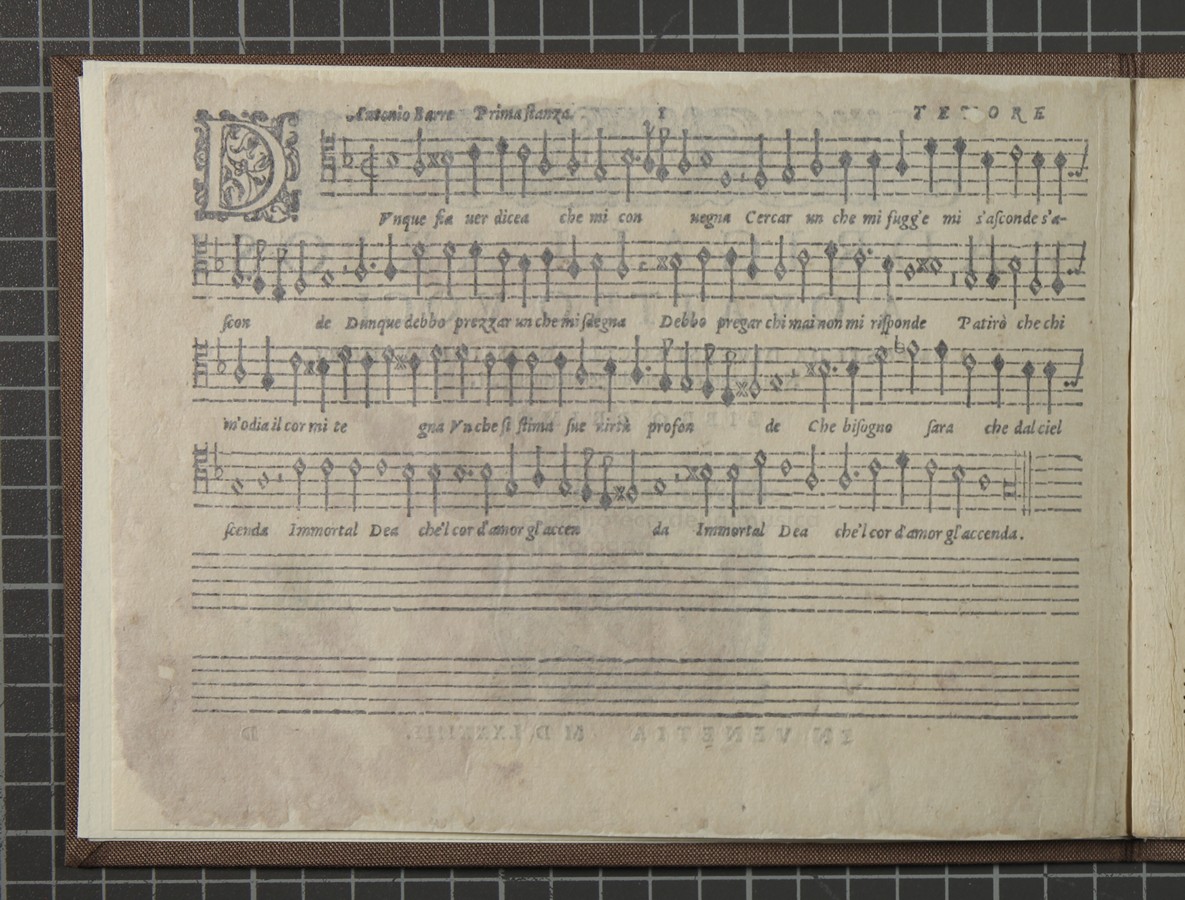 Antonio Barre Prima stanza. I TENORE
DVnque fia uer dicea che mi con uegna Cercar un che mi fugg'e mi s'asconde s'a-
scon de Dunque debbo prezzar un che mi sdegna Debbo pregar chi mai non mi risponde Patirò che chi
m'odia il cor mi te gna Vn che si stima sue virtù profon de Che bisogno sara che dal ciel
scenda Immortal Dea che'l cor d'amor gl'accen da Immortal Dea che'l cor d'amor gl'accenda.
IN VENETIA M D LXXXIIII. D